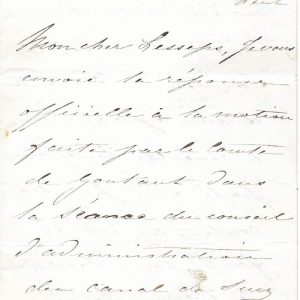 Mon cher Lesseps, je vous
envoie la réponse
officielle à la motion
faite par le Comte
de Gontaut dans
la séance du conseil
d'administration
du canal de Suez